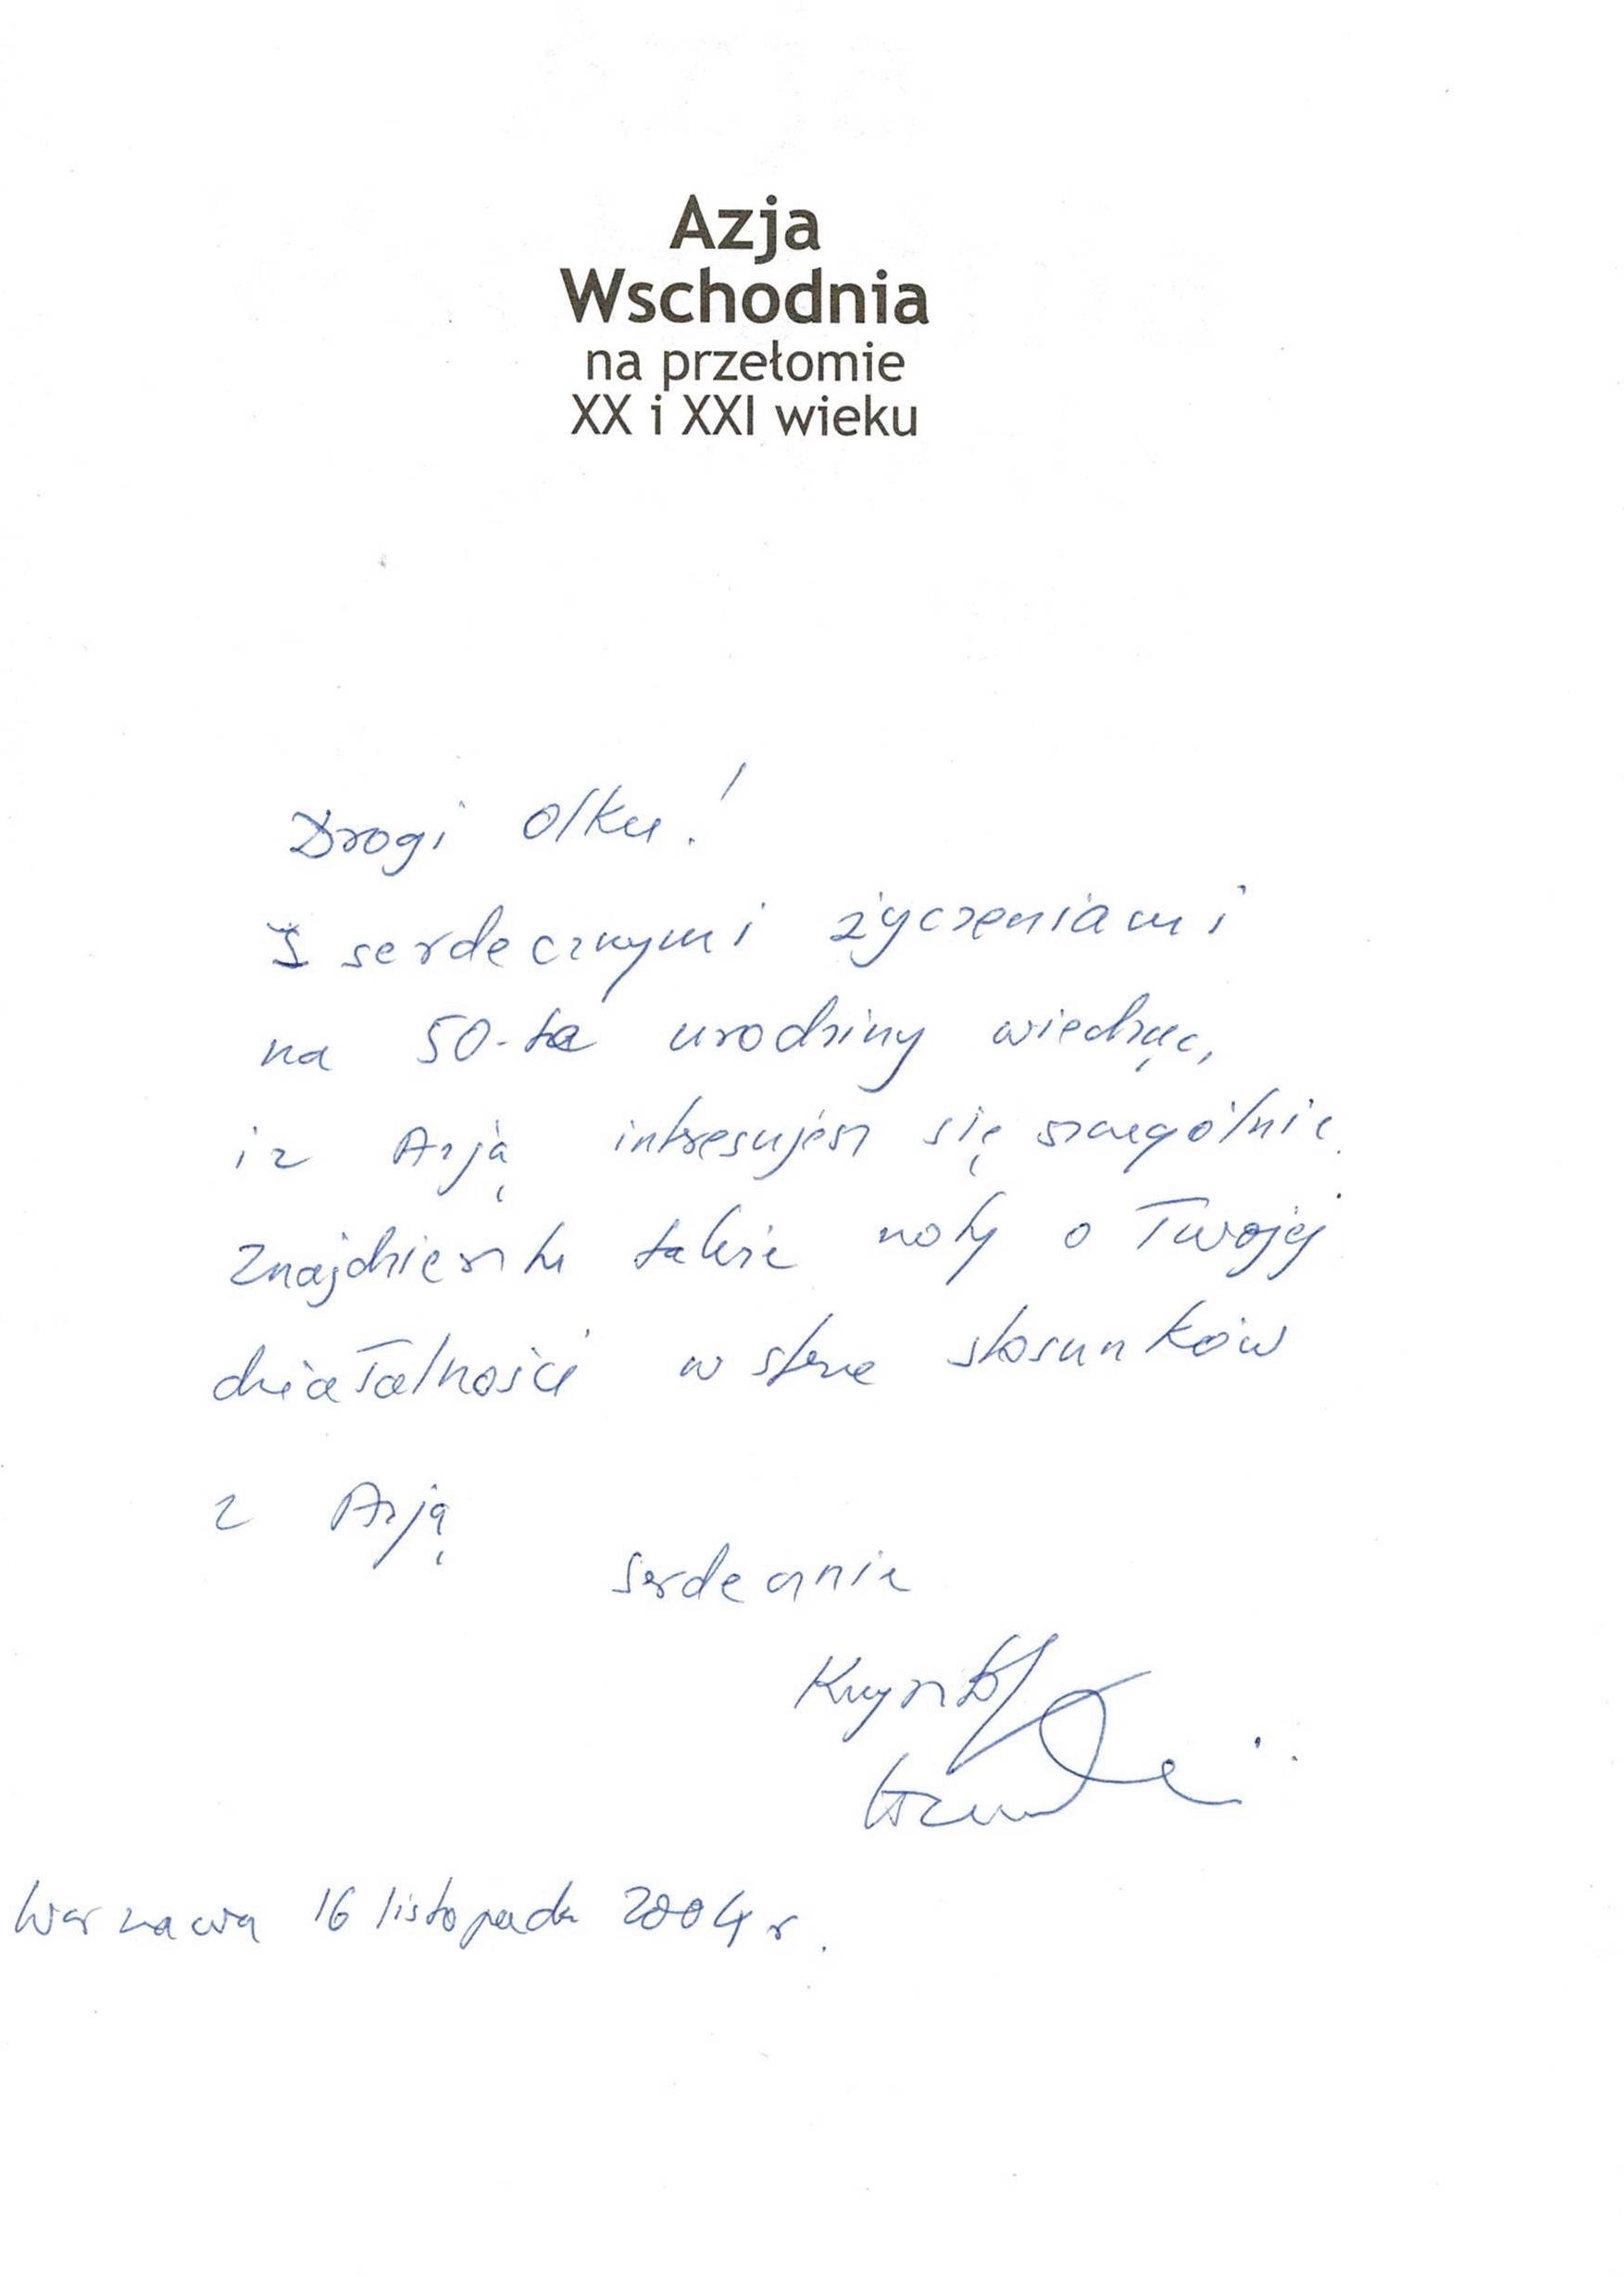 Azja
Wschodnia
na przełomie
XX i XXI wieku
Drogi Olku!
Z serdecznymi życzeniami
na 50-te urodziny wiedząc,
iż Azją interesujesz się szczególnie.
Znajdziesz tu także noty o Twojej
działalności w sferze stosunków
z Azją
Serdecznie
Krzysztof
Warszawa 16 listopada 2004 r.